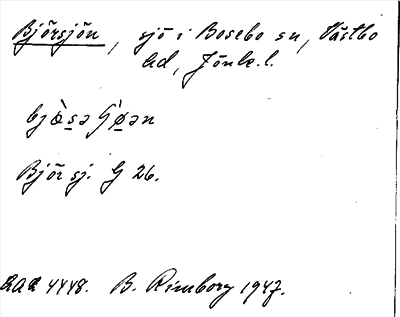 Björsjön, sjö i Bosebo sn, Västbo
hd, Jönk.l.
Björ sj. G 26.
4448. B. Rimborg 1947.